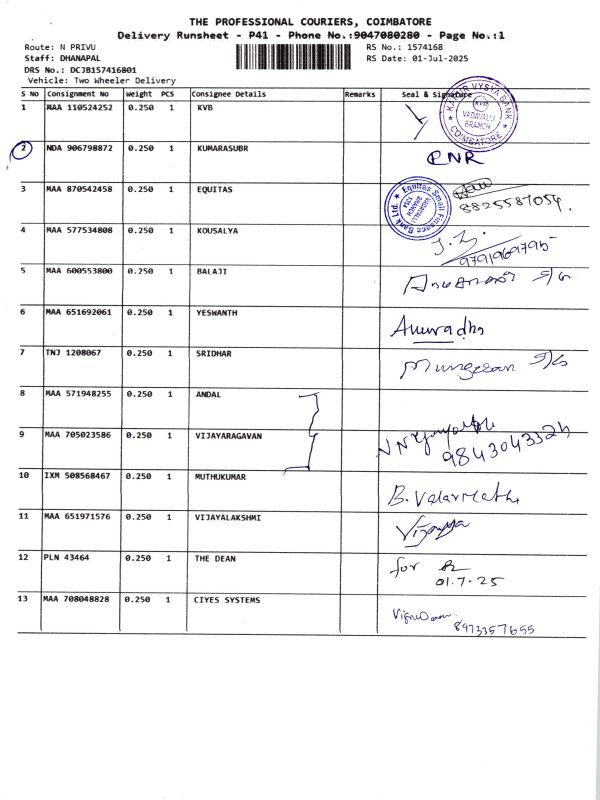 THE PROFESSIONAL COURIERS, COIMBATORE
Delivery Runsheet - P41 - Phone No.:9047080280 - Page No.:1
Route: N PRIVU RS No.: 1574168
Staff: DHANAPAL RS Date: 01-Jul-2025
DRS No.: DCJB157416801
Vehicle: Two Wheeler Delivery
S No Consignment No Weight PCS Consignee Details Remarks Seal & Signature
1 MAA 110524252 0.250 1 KVB
KARUR VYSYA BANK KVB VADAVALLI BRANCH COIMBATORE
2 NDA 906798872 0.250 1 KUMARASUBR
3 MAA 870542458 0.250 1 EQUITAS 8825587054.
Equitas Small Finance Bank Ltd. VADAVALLI BRANCH
4 MAA 577534808 0.250 1 KOUSALYA
9791969795
5 MAA 600553800 0.250 1 BALAJI
6 MAA 651692061 0.250 1 YESWANTH Anuradha
7 TNJ 1208067 0.250 1 SRIDHAR Murugesan S/G
8 MAA 571948255 0.250 1 ANDAL
9 MAA 705023586 0.250 1 VIJAYARAGAVAN
9843043324
10 IXM 508568467 0.250 1 MUTHUKUMAR B. Valarmathi
11 MAA 651971576 0.250 1 VIJAYALAKSHMI Vijayya
12 PLN 43464 0.250 1 THE DEAN for
01.7.25
13 MAA 708048828 0.250 1 CIYES SYSTEMS
8973357655